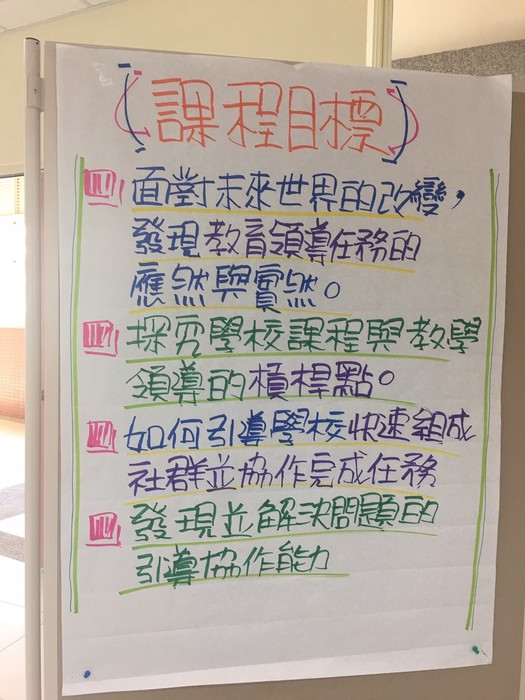 【課程目標】
面對未來世界的改變，
發現教育領導任務的
應然與實然。
探究學校課程與教學
領導的槓桿點。
如何引導學校快速組成
社群並協作完成任務
發現並解決問題的
引導協作能力